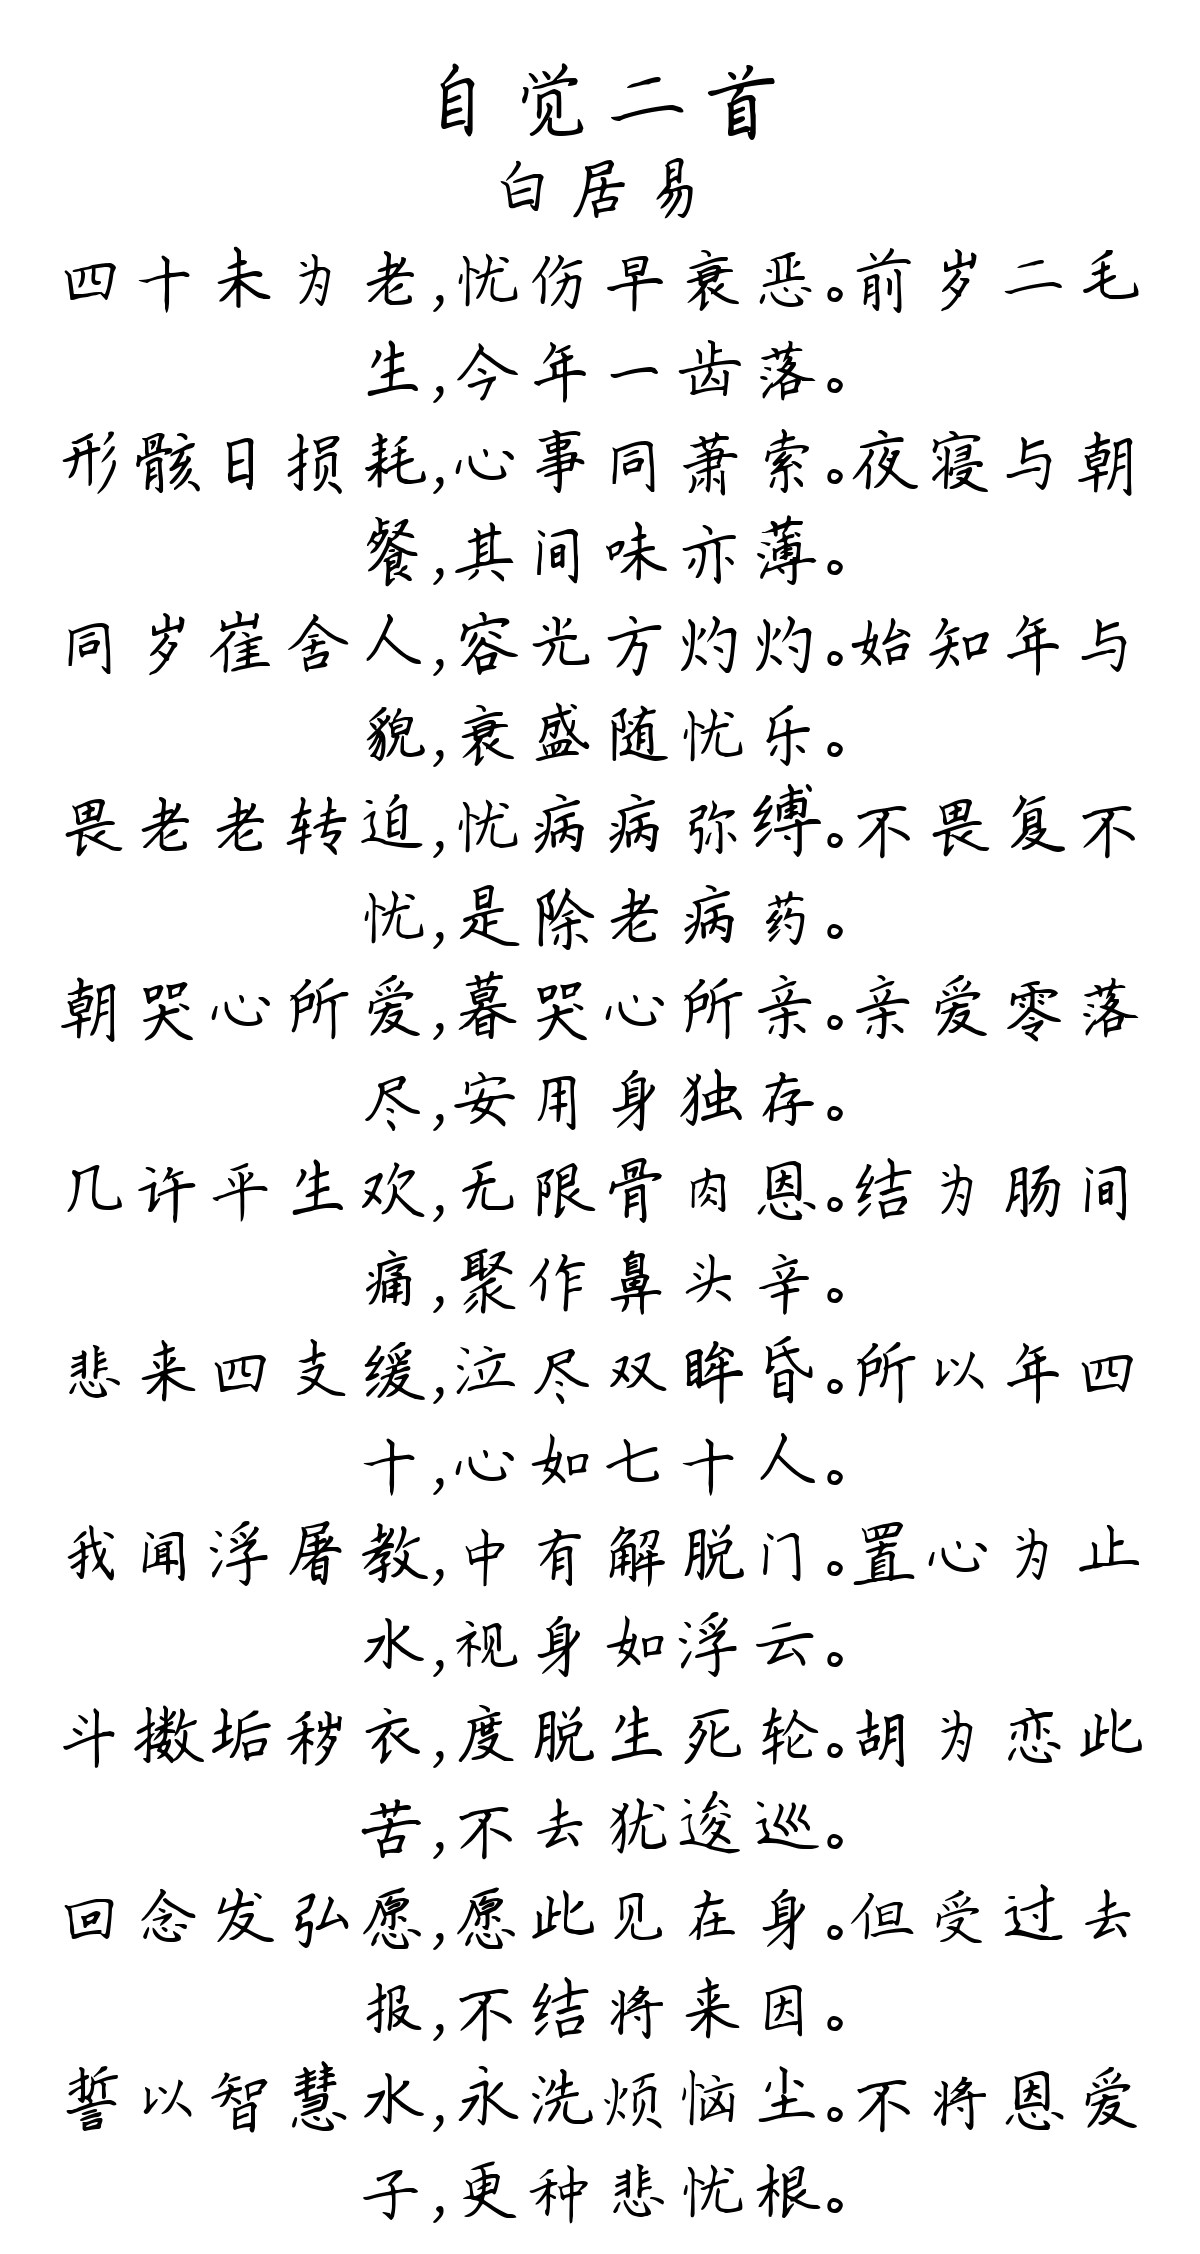 自觉二首
白居易
四十未为老,忧伤早衰恶。前岁二毛
生,今年一齿落。
形骸日损耗,心事同萧索。夜寝与朝
餐,其间味亦薄。
同岁崔舍人,容光方灼灼。始知年与
貌,衰盛随忧乐。
畏老老转迫,忧病病弥缚。不畏复不
忧,是除老病药。
朝哭心所爱,暮哭心所亲。亲爱零落
尽,安用身独存。
几许平生欢,无限骨肉恩。结为肠间
痛,聚作鼻头辛。
悲来四支缓,泣尽双眸昏。所以年四
十,心如七十人。
我闻浮屠教,中有解脱门。置心为止
水,视身如浮云。
斗擞垢秽衣,度脱生死轮。胡为恋此
苦,不去犹逡巡。
回念发弘愿,愿此见在身。但受过去
报,不结将来因。
誓以智慧水,永洗烦恼尘。不将恩爱
子,更种悲忧根。